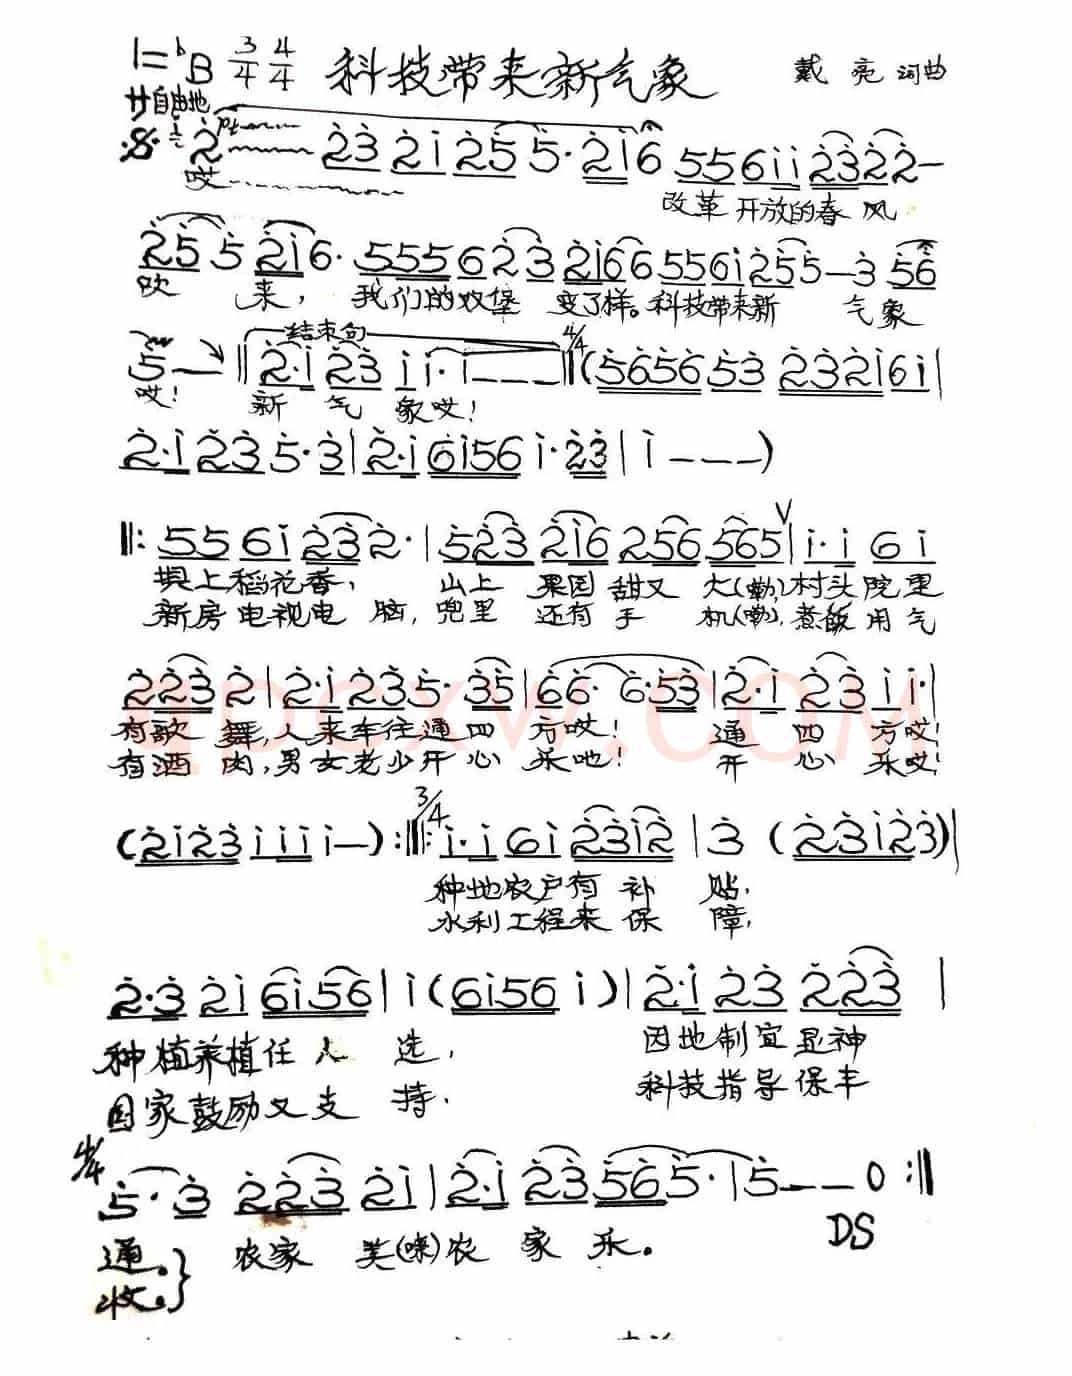 1=♭B 3/4 4/4 科技带来新气象 戴亮 词曲
廾自由地
哎 改革开放的春风
吹 来， 我们的坟堡 变了样。科技带来新 气象
结束句 4/4
哎！ 新 气 象哎！
(5656 53 2321 61|
2·1 23 5·3|2·1 6156 1·23|1---)
‖:55 61 232·|523 216 256 565|1·1 61
坝上稻花香， 山上 果园 甜又 大(嘞)，村头院里
新房电视电 脑，兜里 还有 手 机(嘞)，煮饭用气
223 2|2·1 235·35|66· 6·53|2·1 23 11·|
有歌 舞，人来车往通四 方哎！ 通 四 方哎！
有酒 肉，男女老少开心 乐吔！ 开 心 乐哎！
(2123 111 1—):‖: 3/4 1·1 61 2312|3 (23123)|
种地农户有 补 贴，
水利工程来 保 障，
2·3 21 6156|1(6156 1)|2·1 23 223|
种植养植任 人 选， 因地制宜显神
国家鼓励又支 持， 科技指导保丰
4/4
5·3 223 21|2·1 23 565·|5——0:‖
通。 农家 美(味)农 家 乐。 DS
收。